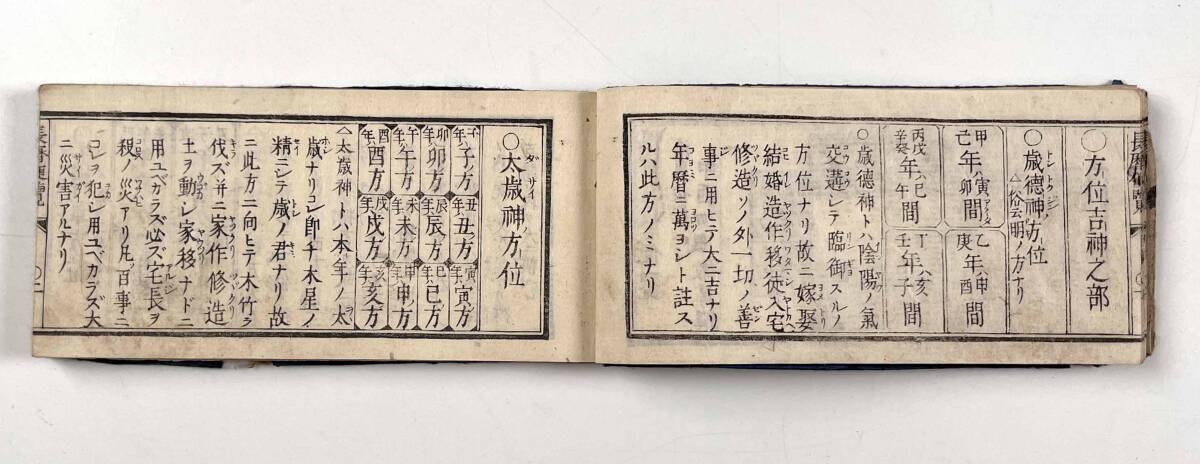 ○方位吉神之部
○歳徳神方位
△俗云明ノ方ナリ
甲己年ハ寅卯ノ間
乙庚年ハ申酉間
丙戊辛癸年ハ巳午間
丁壬年ハ亥子間
○歳徳神トハ陰陽ノ氣
交遘シテ臨御スルノ
方位ナリ故ニ嫁娶
結婚造作移徒入宅
修造ソノ外一切ノ善
事ニ用ヒテ大ニ吉ナリ
年暦ニ萬ヨシト註ス
ルハ此方ノミナリ
○太歳神方位
子年子方 丑年丑方 寅年寅方
卯年卯方 辰年辰方 巳年巳方
午年午方 未年未方 申年申方
酉年酉方 戌年戌方 亥年亥方
△太歳神トハ本年ノ太
歳ナリコレ即チ木星ノ
精ニシテ歳ノ君ナリ故
ニ此方ニ向ヒテ木竹ヲ
伐ズ并ニ家作修造
土ヲ動シ家移ナドニ
用ユベカラズ必ズ宅長ヲ
殺ノ災アリ凡ソ百事ニ
コレヲ犯シ用ユベカラズ大
ニ災害アルナリ